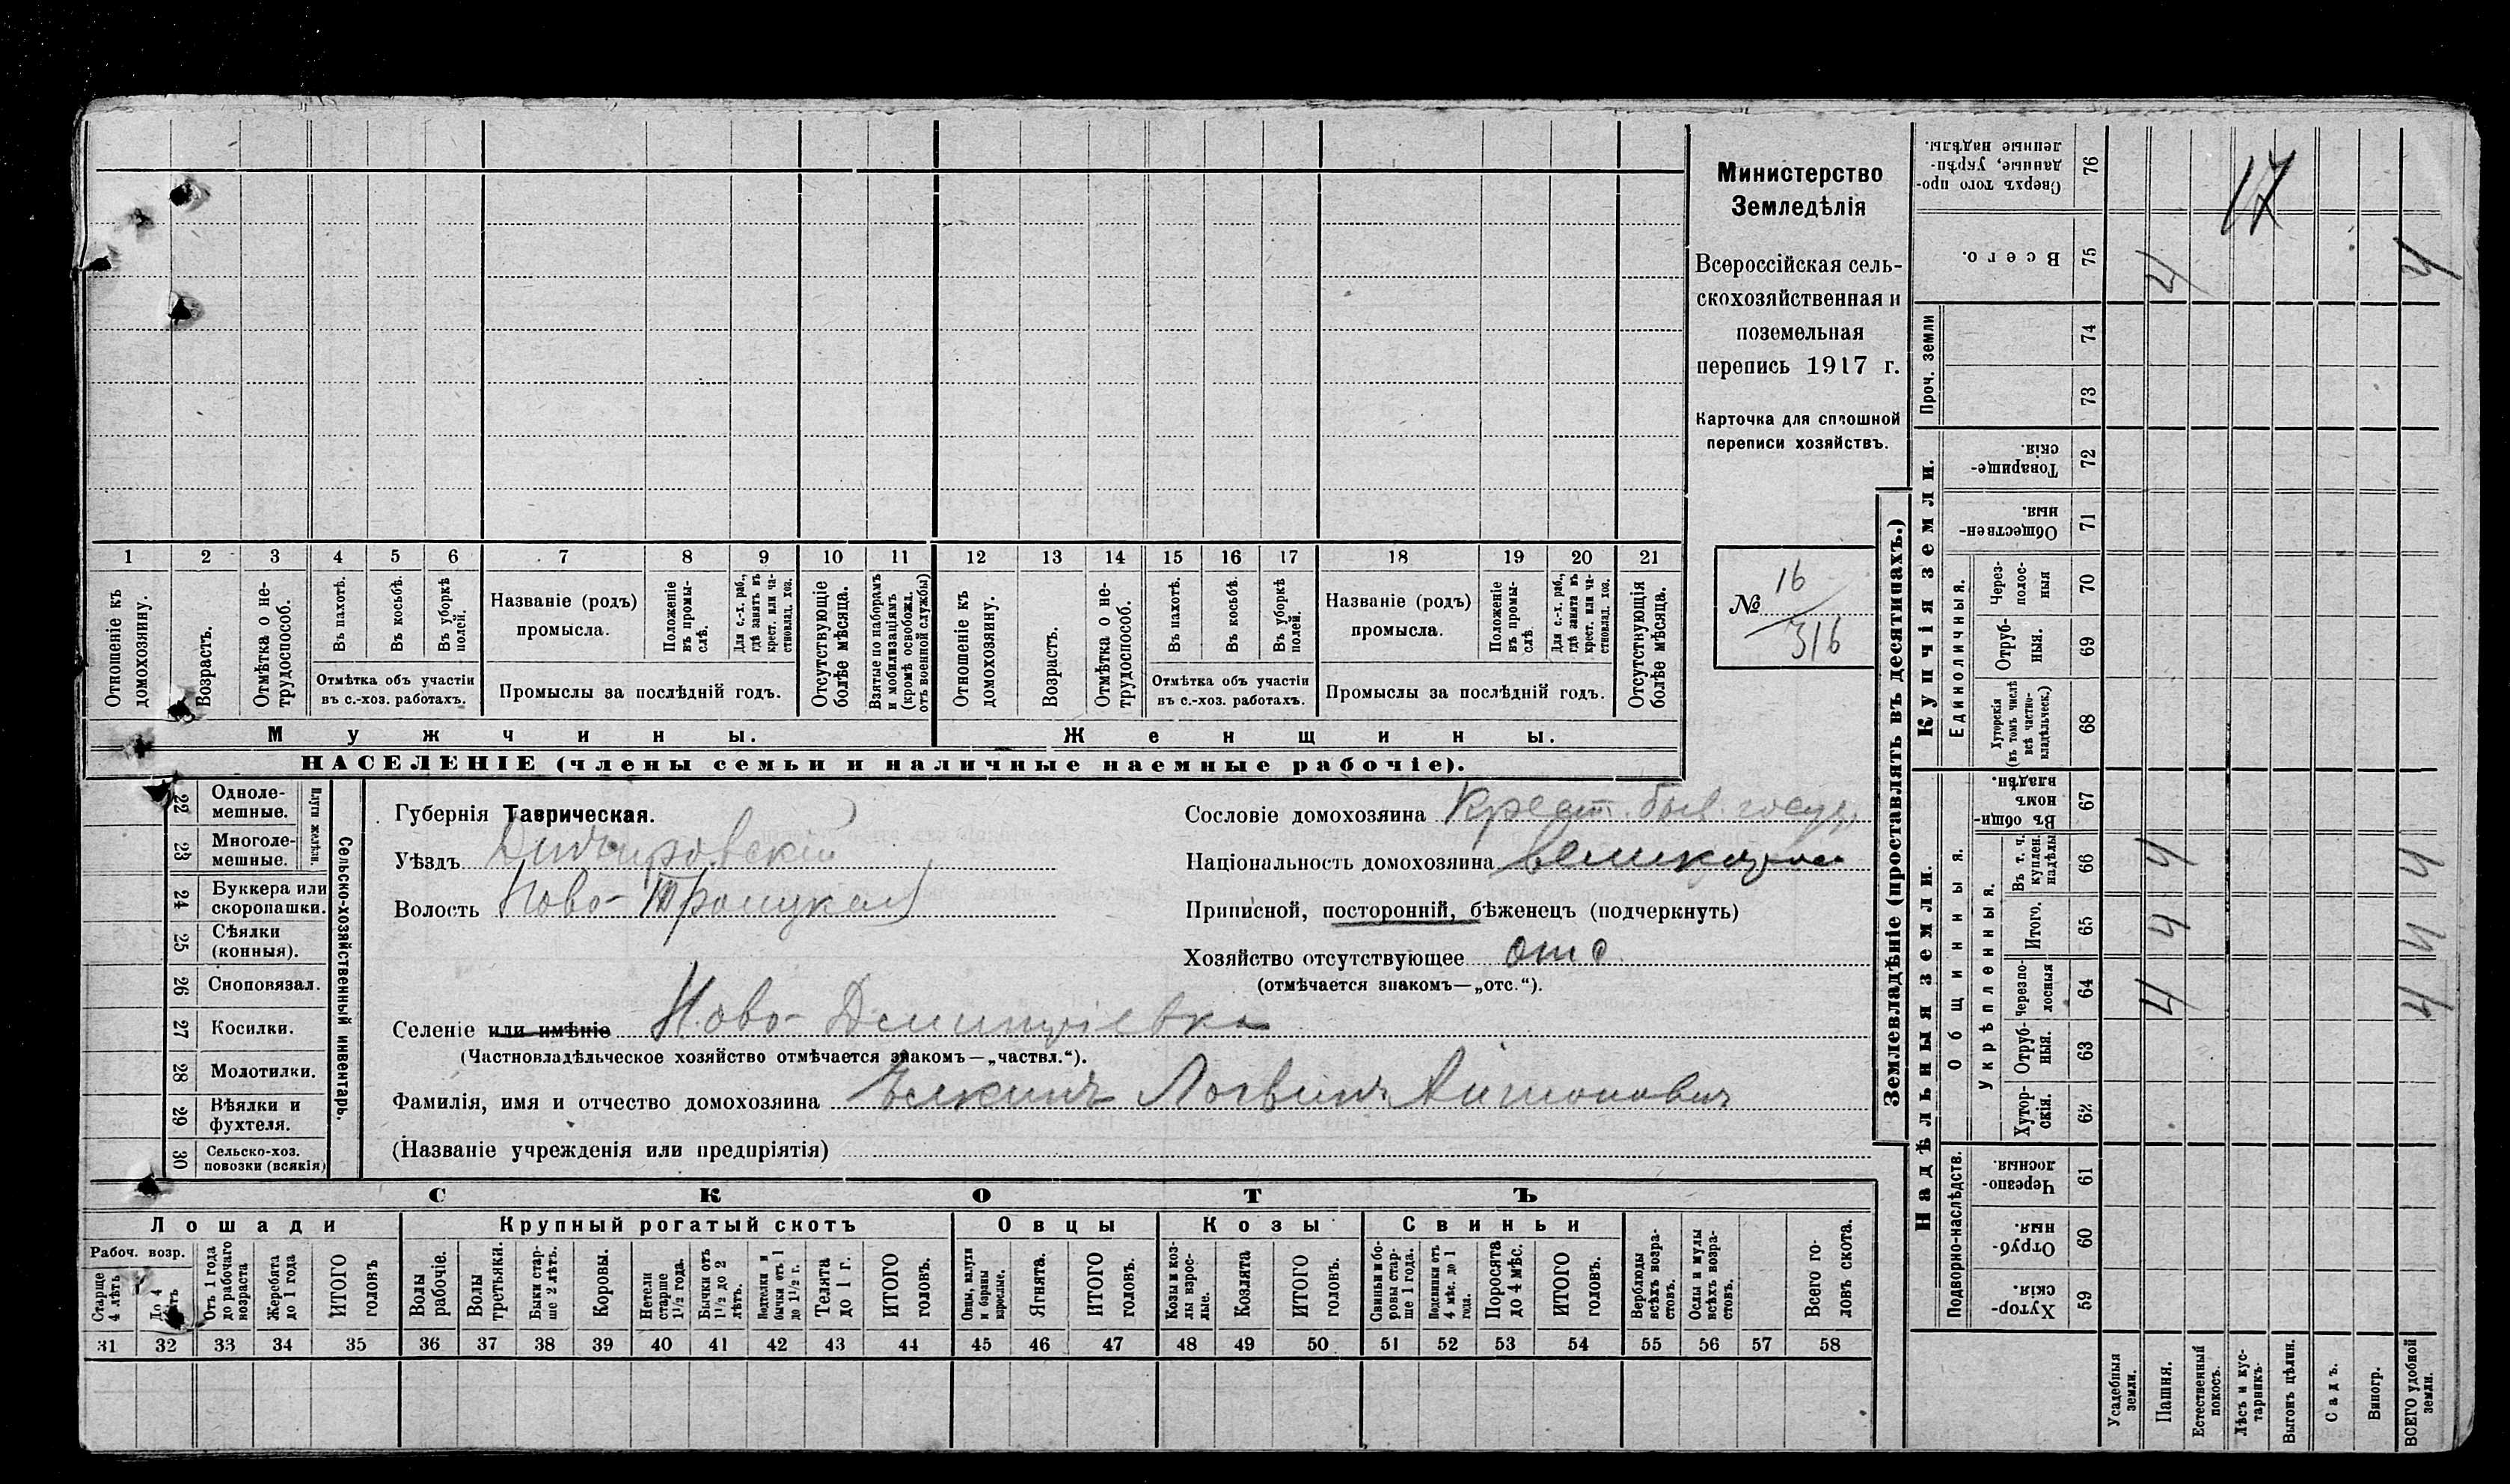 Министерство
Земледѣлія
Всероссійская сель-
скохозяйственная и
поземельная
перепись 1917 г.
Карточка для сплошной
переписи хозяйствъ.
№ 16
316
1 2 3 4 5 6 7 8 9 10 11 12 13 14 15 16 17 18 19 20 21
Отношеніе къ домохозяину.
Возрастъ.
Отмѣтка о не-трудоспособ.
Въ пахотѣ.
Въ косьбѣ.
Въ уборкѣ полей.
Отмѣтка объ участіи
въ с.-хоз. работахъ.
Названіе (родъ)
промысла.
Положеніе въ промы-слѣ.
Для с.-х. раб., гдѣ занятъ въ крест. или ча-стновлад. хоз.
Промыслы за послѣдній годъ.
Отсутствующіе болѣе мѣсяца.
Взятые по наборамъ и мобилизаціямъ (кромѣ освобожд. отъ военной службы)
Отношеніе къ домохозяину.
Возрастъ.
Отмѣтка о не-трудоспособ.
Въ пахотѣ.
Въ косьбѣ.
Въ уборкѣ полей.
Отмѣтка объ участіи
въ с.-хоз. работахъ.
Названіе (родъ)
промысла.
Положеніе въ промы-слѣ
Для с.-х. раб., гдѣ занята въ крест. или ча-стновлад. хоз.
Промыслы за послѣдній годъ.
Отсутствующія болѣе мѣсяца.
Мужчины. Женщины.
НАСЕЛЕНІЕ (члены семьи и наличные наемные рабочіе).
22 Одноле-мешные.
23 Многоле-мешные.
Плуги желѣзн.
24 Буккера или скоропашки.
25 Сѣялки (конныя).
26 Сноповязал.
27 Косилки.
28 Молотилки.
29 Вѣялки и фухтеля.
30 Сельско-хоз. повозки (всякія)
Сельско-хозяйственный инвентарь.
Губернія Таврическая.
Уѣздъ Днѣпровскій
Волость Ново-Троицкая
Селеніе или имѣніе Ново-Дмитріевка
(Частновладѣльческое хозяйство отмѣчается знакомъ—„частвл.“).
Фамилія, имя и отчество домохозяина Логвинъ Антоновичъ
(Названіе учрежденія или предпріятія)
Сословіе домохозяина Крест. быв. госуд.
Національность домохозяина великороссъ
Приписной, посторонній, бѣженецъ (подчеркнуть)
Хозяйство отсутствующее отс.
(отмѣчается знакомъ—„отс.“).
СКОТЪ
Лошади Крупный рогатый скотъ Овцы Козы Свиньи
Рабоч. возр.
Старше 4 лѣтъ
До 4 лѣтъ
Отъ 1 года до рабочаго возраста
Жеребята до 1 года
ИТОГО головъ
Волы рабочіе.
Волы третьяки.
Быки стар-ше 2 лѣтъ.
Коровы.
Нетели старше 1 1/2 года.
Бычки отъ 1 1/2 до 2 лѣтъ.
Подтелки и бычки отъ 1 до 1 1/2 г.
Телята до 1 г.
ИТОГО головъ.
Овцы, валухи и бараны взрослые.
Ягнята.
ИТОГО головъ.
Козы и коз-лы взрос-лые.
Козлята
ИТОГО головъ.
Свиньи и бо-ровы стар-ше 1 года.
Подсвинки отъ 4 мѣс. до 1 года.
Поросята до 4 мѣс.
ИТОГО головъ.
Верблюды всѣхъ возра-стовъ.
Ослы и мулы всѣхъ возра-стовъ.
Всего го-ловъ скота.
31 32 33 34 35 36 37 38 39 40 41 42 43 44 45 46 47 48 49 50 51 52 53 54 55 56 57 58
Землевладѣніе (проставлять въ десятинахъ.)
Купчія земли.
Надѣльныя земли.
Сверхъ того про-данные, укрѣп-ленные надѣлы. 76
17
Всего. 75 4 4
Проч. земли 74
73
Товарище-скія. 72
Обществен-ныя. 71
Единоличныя.
Через-полос-ныя 70
Отруб-ныя. 69
Хуторскія (въ томъ числѣ всѣ частно-владѣльческ.) 68
Общинныя.
Въ общи-номъ владѣн. 67
Укрѣпленныя.
Въ т. ч. куплен. надѣлы 66 4 4
Итого. 65 4 4
Черезпо-лосныя 64 4 4
Отруб-ныя. 63
Хутор-скія. 62
Подворно-наслѣдств.
Черезпо-лосныя. 61
Отруб-ныя. 60
Хутор-скія. 59
Усадебныя земли.
Пашня.
Естественный покосъ.
Лѣсъ и кус-тарникъ.
Выгонъ цѣлин.
Садъ.
Виногр.
ВСЕГО удобной земли.